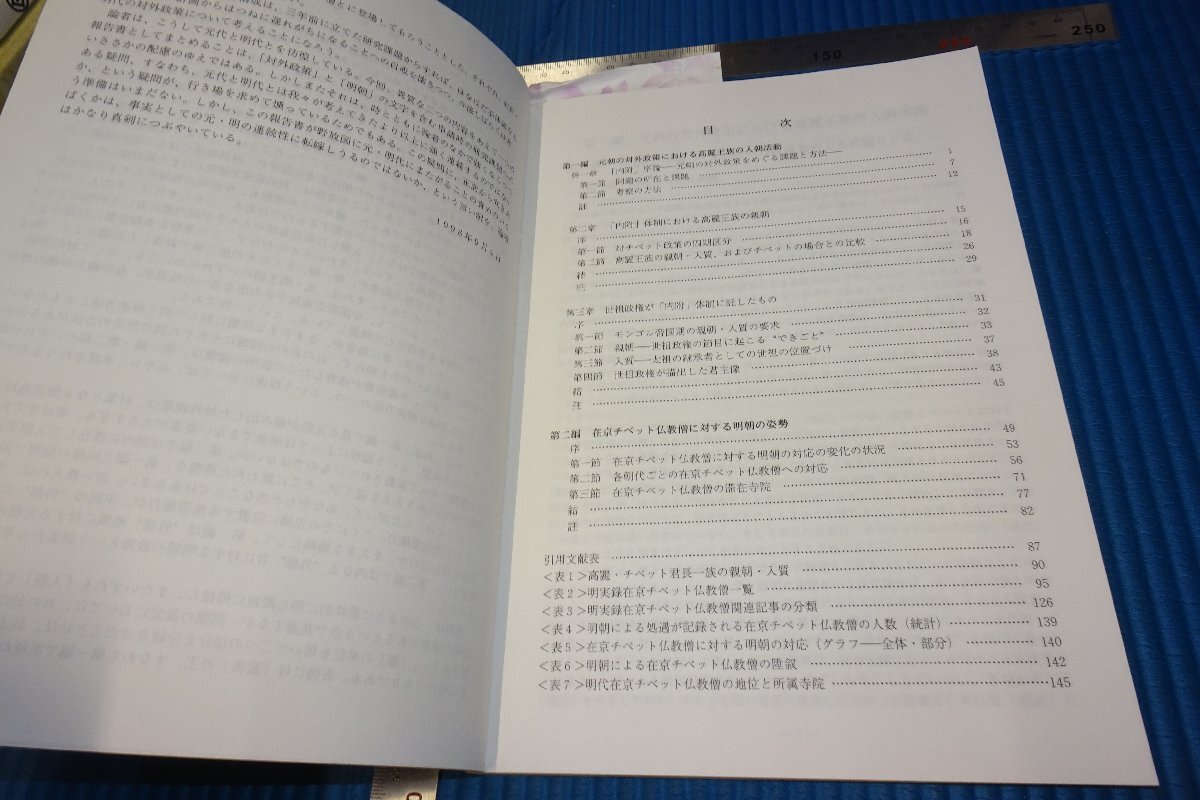 対外政策について考えることになろう。
論者は、こうして元代と明代とを彷徨している。今回、
報告書としてまとめることは、「対外政策」と「明朝」の文字を含む
いささかの配慮のゆえではある。しかしまたそれは、時とともに
ある疑問、すなわち、元代と明代とは我々が考えてきたより以上に強く連続するのではない
か、という疑問が、行き場を求めて
う準備はいまだない。しかし、この報告書が野放図に元・明代にまたがることの
ばくかは、事実としての元・明の連続性に転嫁しうるのではないか、という
はかなり真剣につぶやいている。
1998年9月
150
250
目 次
第一編 元朝の対外政策における高麗王族の入朝活動
第一章 「内附」序論――元朝の対外政策をめぐる課題と方法―― 1
第一節 問題の所在と課題 7
第二節 考察の方法 12
註
第二章 「内附」体制における高麗王族の親朝
序 15
第一節 対チベット政策の四期区分 16
第二節 高麗王族の親朝・入質、およびチベットの場合との比較 18
結 26
註 29
第三章 世祖政権が「内附」体制に託したもの
序 31
第一節 モンゴル帝国期の親朝・入質の要求 32
第二節 親朝――世祖政権の節目に起こる“できごと” 33
第三節 入質――太祖の継承者としての世祖の位置づけ 37
第四節 世祖政権が描出した君主像 38
結 43
註 45
第二編 在京チベット仏教僧に対する明朝の姿勢
序 49
第一節 在京チベット仏教僧に対する明朝の対応の変化の状況 53
第二節 各朝代ごとの在京チベット仏教僧への対応 56
第三節 在京チベット仏教僧の滞在寺院 71
結 77
註 82
引用文献表 87
<表1>高麗・チベット君長一族の親朝・入質 90
<表2>明実録在京チベット仏教僧一覧 95
<表3>明実録在京チベット仏教僧関連記事の分類 126
<表4>明朝による処遇が記録される在京チベット仏教僧の人数(統計) 139
<表5>在京チベット仏教僧に対する明朝の対応(グラフ――全体・部分) 140
<表6>明朝による在京チベット仏教僧の陞叙 142
<表7>明代在京チベット仏教僧の地位と所属寺院 145